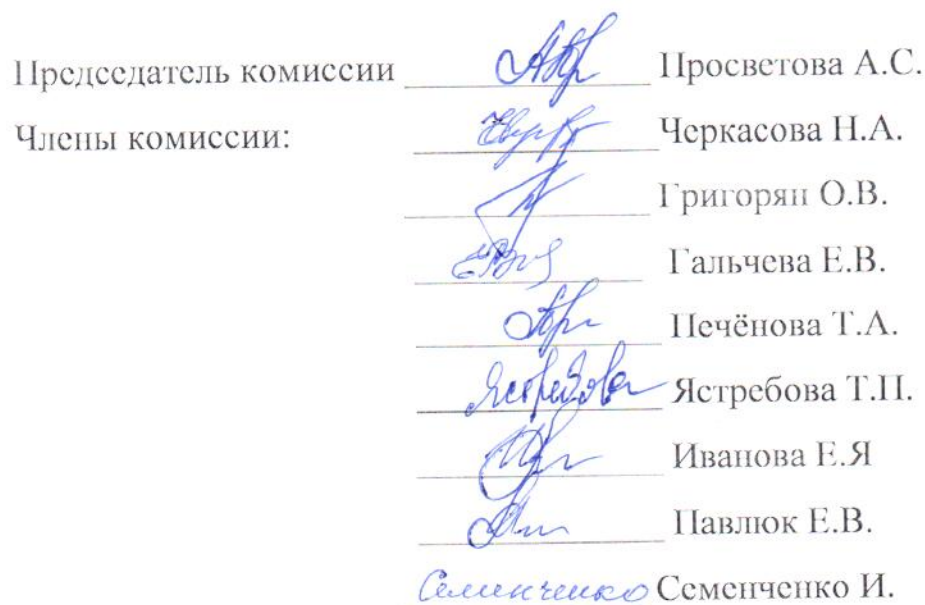 Председатель комиссии Просветова А.С.
Члены комиссии: Черкасова Н.А.
Григорян О.В.
Гальчева Е.В.
Печёнова Т.А.
Ястребова Ястребова Т.П.
Иванова Е.Я
Павлюк Е.В.
Семенченко Семенченко И.